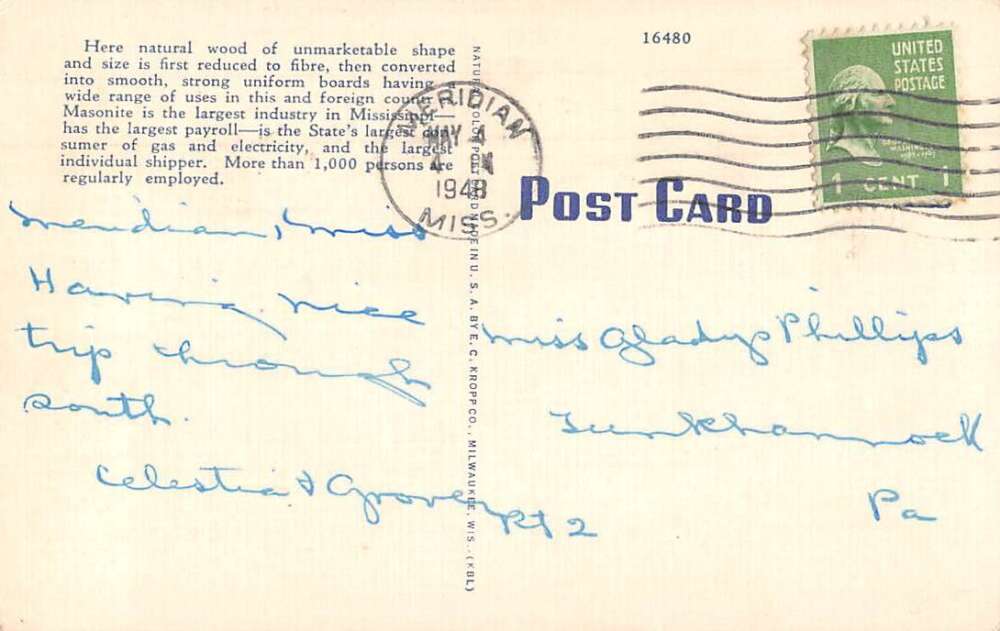 Here natural wood of unmarketable shape
and size is first reduced to fibre, then converted
into smooth, strong uniform boards having a
wide range of uses in this and foreign countr
Masonite is the largest industry in Mississippi—
has the largest payroll—is the State's largest con
sumer of gas and electricity, and the largest
individual shipper. More than 1,000 persons are
regularly employed.
Meridian, Miss
Having nice
trip through
south.
Celestia & Grover
NATURAL COLOR POST CARD MADE IN U. S. A. BY E. C. KROPP CO., MILWAUKEE, WIS. (KBL)
16480
MERIDIAN
MAY 4
1948
MISS.
POST CARD
UNITED
STATES
POSTAGE
1 CENT 1
Miss Gladys Phillips
Tunkhannock
Pa
Rt 2